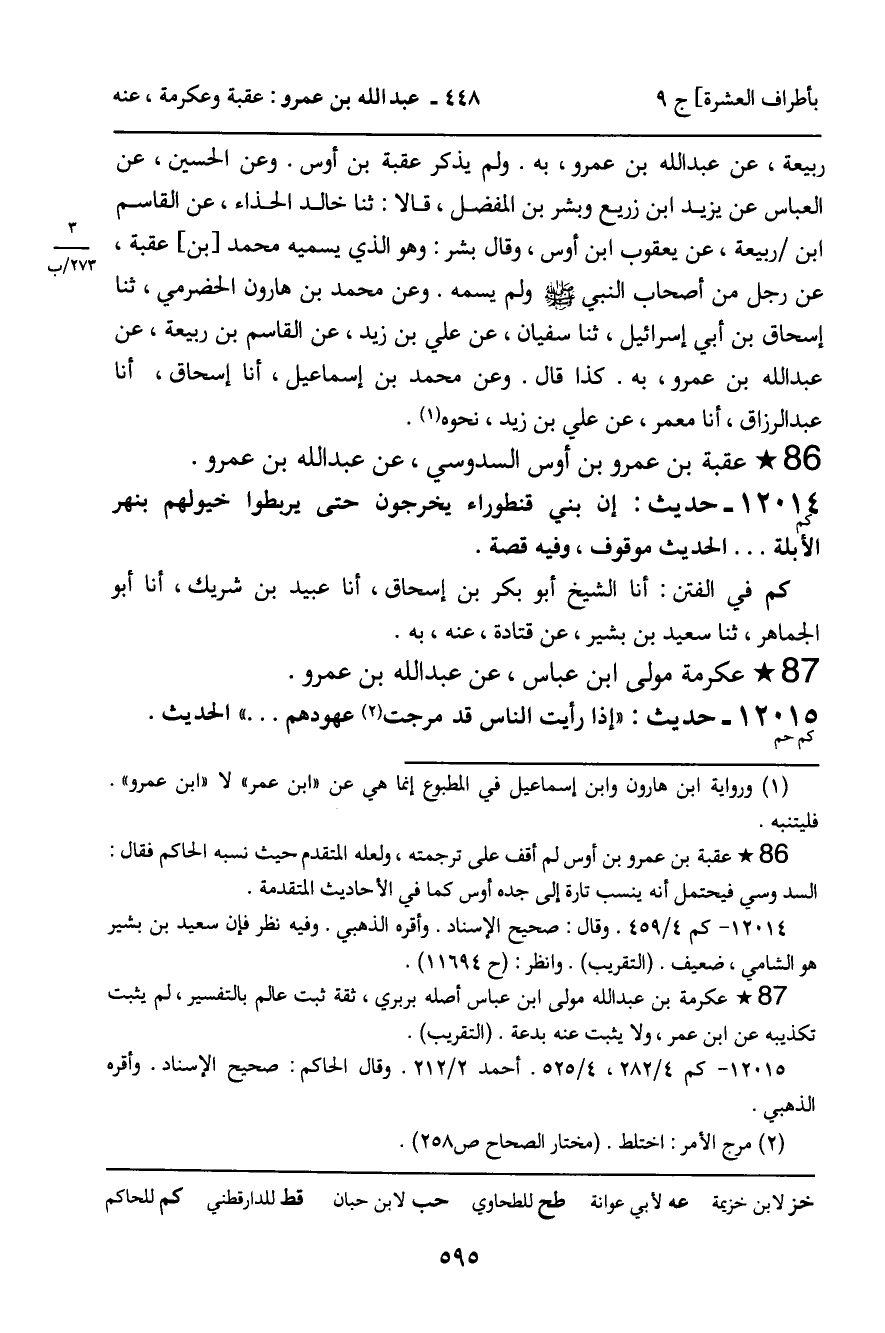 بأطراف العشرة] ج ٩ ٤٤٨ ـ عبدالله بن عمرو : عقبة وعكرمة ، عنه
ربيعة ، عن عبدالله بن عمرو ، به . ولم يذكر عقبة بن أوس . وعن الحسين ، عن
العباس عن يزيد ابن زريع وبشر بن المفضل ، قالا : ثنا خالد الحذاء ، عن القاسم
ابن /ربيعة ، عن يعقوب ابن أوس ، وقال بشر : وهو الذي يسميه محمد [بن] عقبة ،
٣
٢٧٣/ب
عن رجل من أصحاب النبي ﷺ ولم يسمه . وعن محمد بن هارون الحضرمي ، ثنا
إسحاق بن أبي إسرائيل ، ثنا سفيان ، عن علي بن زيد ، عن القاسم بن ربيعة ، عن
عبدالله بن عمرو ، به . كذا قال . وعن محمد بن إسماعيل ، أنا إسحاق ، أنا
عبدالرزاق ، أنا معمر ، عن علي بن زيد ، نحوه(١) .
86 ★ عقبة بن عمرو بن أوس السدوسي ، عن عبدالله بن عمرو .
١٢٠١٤ ـ حديث : إن بني قنطوراء يخرجون حتى يربطوا خيولهم بنهر
كم
الأبلة . . . الحديث موقوف ، وفيه قصة .
كم في الفتن : أنا الشيخ أبو بكر بن إسحاق ، أنا عبيد بن شريك ، أنا أبو
الجماهر ، ثنا سعيد بن بشير ، عن قتادة ، عنه ، به .
87 ★ عكرمة مولى ابن عباس ، عن عبدالله بن عمرو .
١٢٠١٥ ـ حديث : «إذا رأيت الناس قد مرجت(٢) عهودهم . . .» الحديث .
كم حم
(١) ورواية ابن هارون وابن إسماعيل في المطبوع إنما هي عن «ابن عمر» لا «ابن عمرو» .
فليتنبه .
86 ★ عقبة بن عمرو بن أوس لم أقف على ترجمته ، ولعله المتقدم حيث نسبه الحاكم فقال :
السد وسي فيحتمل أنه ينسب تارة إلى جده أوس كما في الأحاديث المتقدمة .
١٢٠١٤- كم ٤٥٩/٤ . وقال : صحيح الإسناد . وأقره الذهبي . وفيه نظر فإن سعيد بن بشير
هو الشامي ، ضعيف . (التقريب) . وانظر : (ح ١١٦٩٤) .
87 ★ عكرمة بن عبدالله مولى ابن عباس أصله بربري ، ثقة ثبت عالم بالتفسير ، لم يثبت
تكذيبه عن ابن عمر ، ولا يثبت عنه بدعة . (التقريب) .
١٢٠١٥- كم ٢٨٢/٤ ، ٥٢٥/٤ . أحمد ٢١٢/٢ . وقال الحاكم : صحيح الإسناد . وأقره
الذهبي .
(٢) مرج الأمر : اختلط . (مختار الصحاح ص٢٥٨) .
خز لابن خزيمة عه لأبي عوانة طح للطحاوي حب لابن حبان قط للدارقطني كم للحاكم
٥٩٥